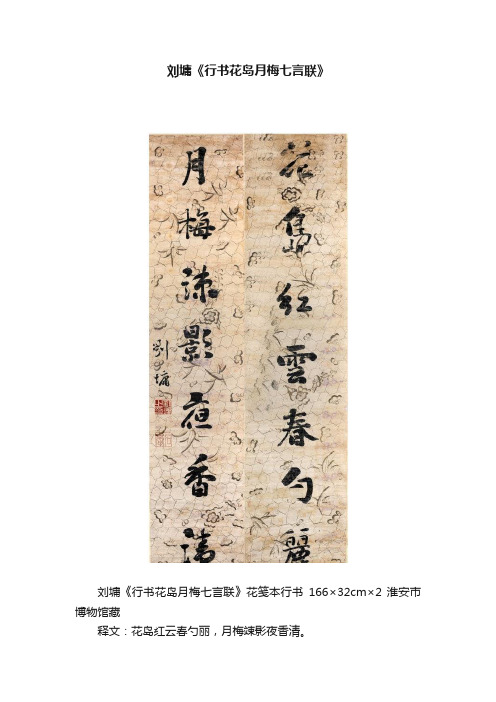 刘墉《行书花岛月梅七言联》
花島紅雲春勺麗
月梅疎影夜香清
劉墉
刘墉《行书花岛月梅七言联》花笺本行书 166×32cm×2 淮安市
博物馆藏
释文：花岛红云春勺丽，月梅竦影夜香清。